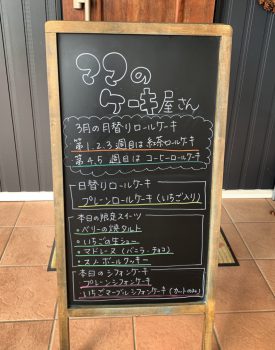 ママの
ケーキ屋さん
3月の月替りロールケーキ
第1.2.3週目は紅茶ロールケーキ
第4.5週目はコーヒーロールケーキ
日替りロールケーキ
プレーンロールケーキ(いちご入り)
本日の限定スイーツ
・ベリーの焼タルト
・いちごの生シュー
・マドレーヌ(バニラ・チョコ)
・スノーボールクッキー
本日のシフォンケーキ
プレーンシフォンケーキ
いちごマーブルシフォンケーキ(カットのみ)